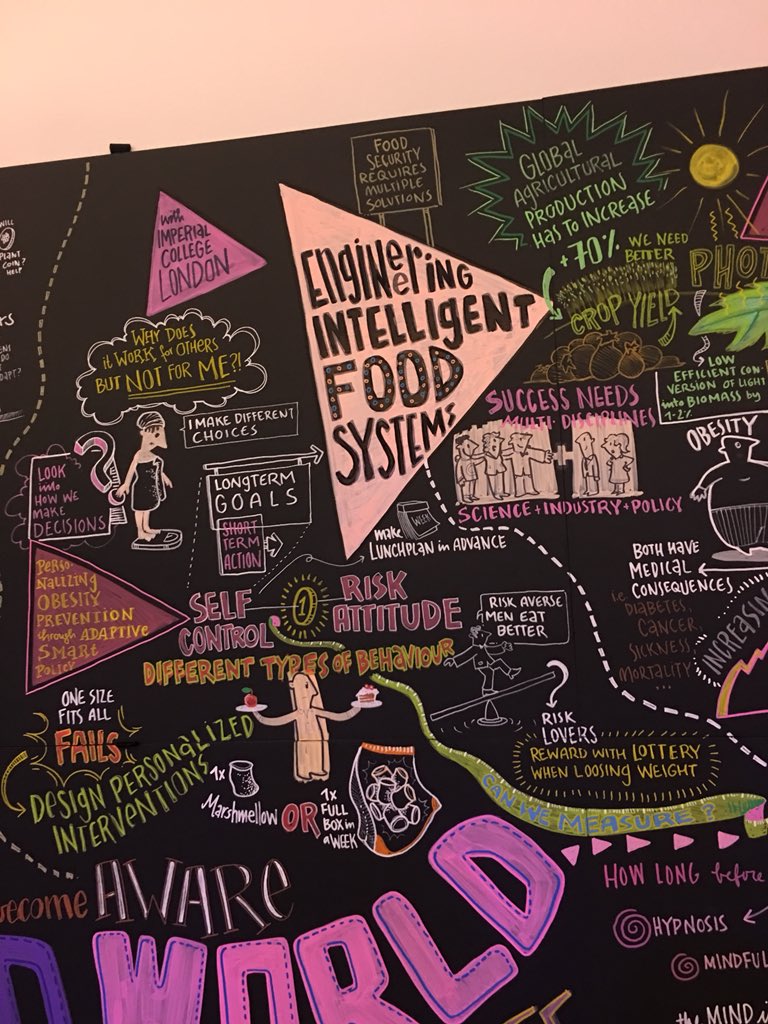 FOOD
SECURITY
REQUIRES
MULTIPLE
SOLUTIONS
GLOBAL
AGRICULTURAL
PRODUCTION
HAS TO INCREASE
+70%
WE NEED
BETTER
CROP YIELD
PHOT
LOW
EFFICIENT CON
VERSION OF LIGHT
into BIOMASS by
1-2%
with
IMPERIAL
COLLEGE
LONDON
ENgiNeeriNg
INTELLIGENT
FOOD
SYSTEMS
WILL
PLANT
COIN?
HELP
WHY DOES
it WORK for OTHERS
BUT NOT FOR ME?!
I MAKE DIFFERENT
CHOICES
LOOK
into
HOW WE
MAKE
DECISIONS
?
LONGTERM
GOALS
SHORT
TERM
ACTION
SUCCESS NEEDS
MULTI-DISCIPLINES
SCIENCE + INDUSTRY + POLICY
make
LUNCHPLAN in ADVANCE
WEEK
OBESITY
BOTH HAVE
MEDICAL
CONSEQUENCES
i.e.
DIABETES,
CANCER,
SICKNESS,
MORTALITY
...
INCREASIN
PERSO
NALIZING
OBESITY
PREVENTION
through ADAPTIVE
SMART
POLICY
SELF
CONTROL
1
RISK
ATTITUDE
DIFFERENT TYPES OF BEHAVIOUR
RISK AVERSE
MEN EAT
BETTER
?
RISK
LOVERS
REWARD WITH LOTTERY
WHEN LOOSING WEIGHT
ONE SIZE
FITS ALL
FAILS
DESIGN PERSONALIZED
INTERVENTIONS
1x
Marshmellow
OR
1x
FULL
BOX in
a WEEK
CAN WE MEASURE?
HOW LONG before
HYPNOSIS
MINDFUL
the MIND i
become AWARE
D WORLD